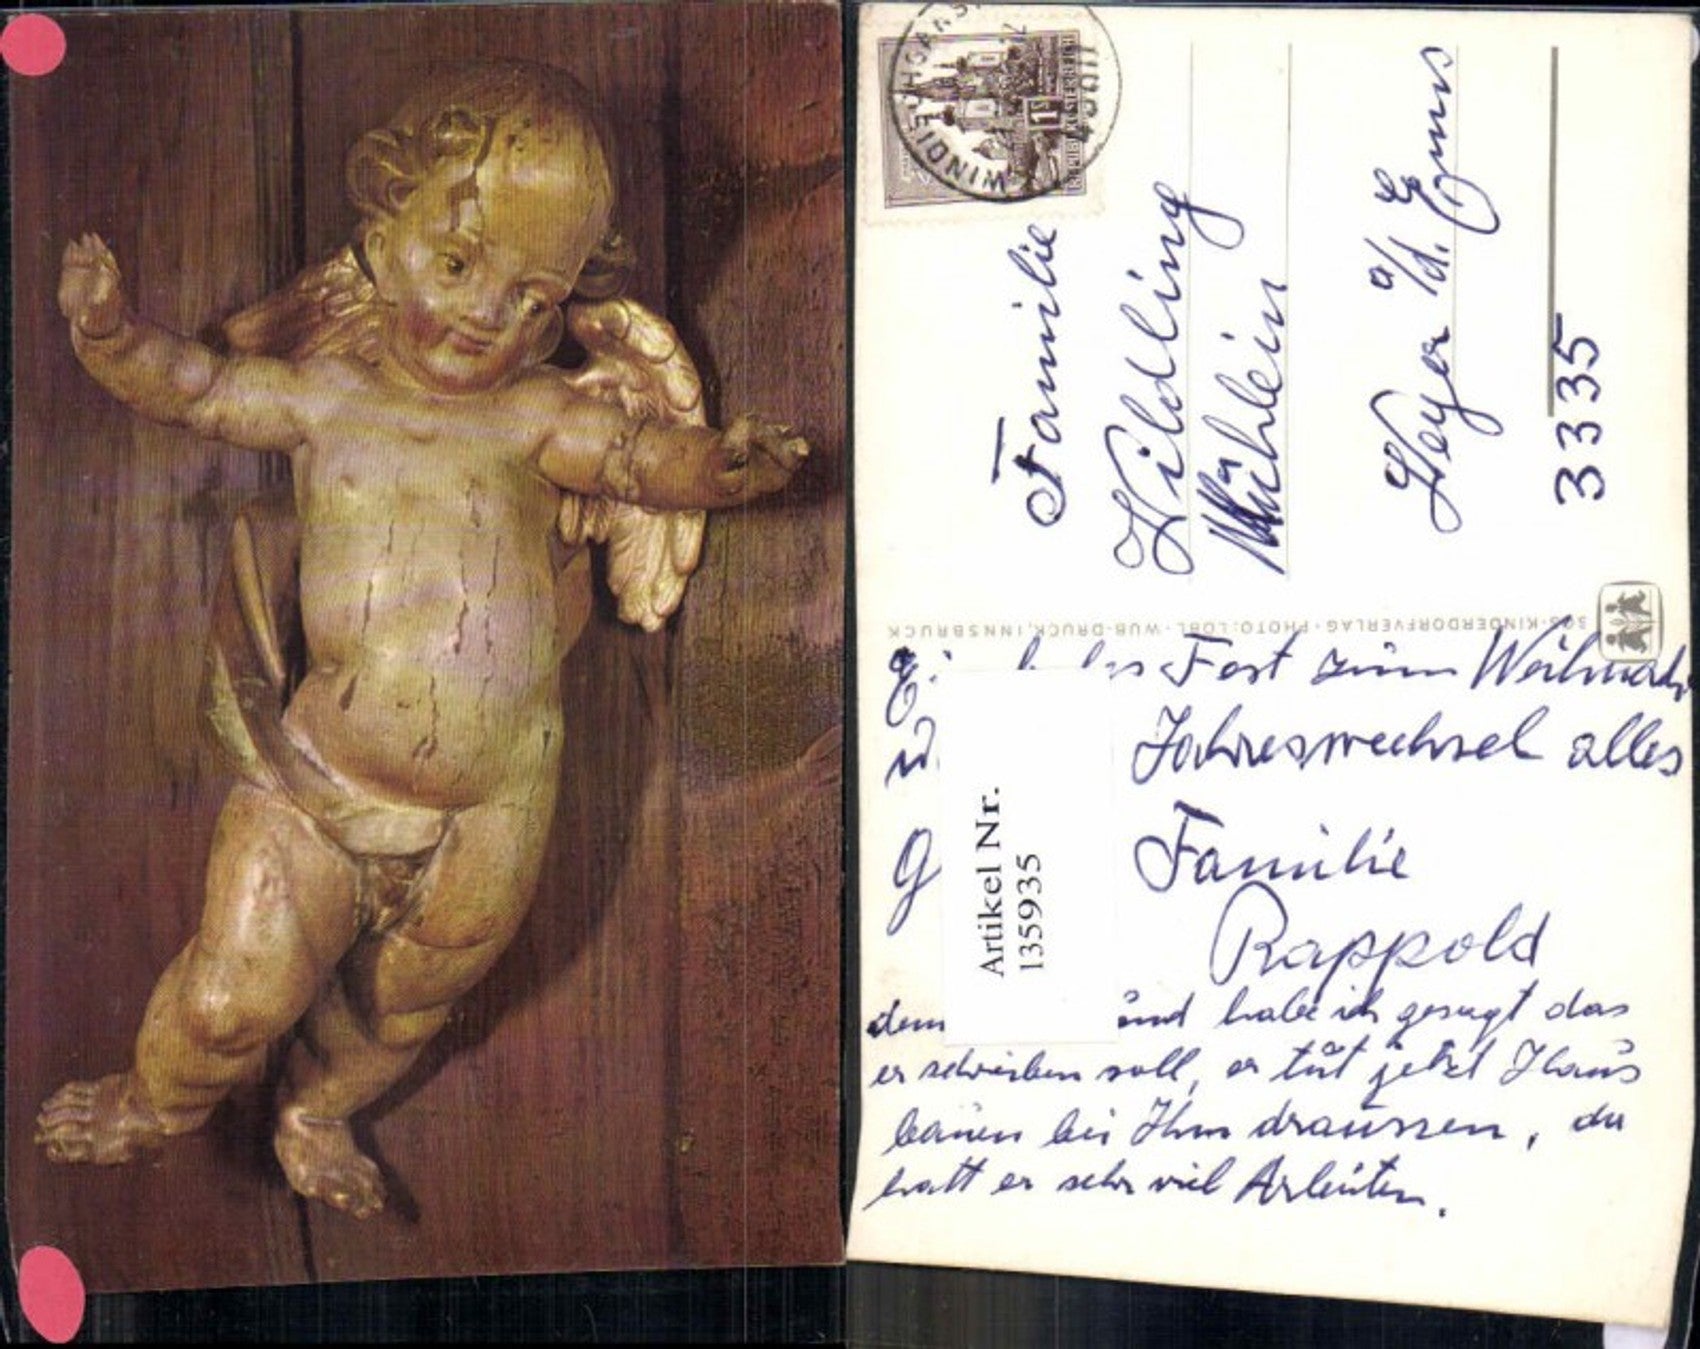 WINDISCHGARSTEN
1 S
REPUBLIK ÖSTERREICH
Familie
Wildling
Mühlein
Weyer a/d. Enns
3335
305 · KINDERDORFVERLAG · PHOTO: LÖBL · WUB-DRUCK, INNSBRUCK
Fest zum Weihnachts
Jahreswechsel alles
G
Artikel Nr.
135935
Familie
Rappold
dem und habe ich gesagt das
er schreiben soll, er tut jetzt Haus
bauen bei Ihm draussen, da
hatt er sehr viel Arbeiten.